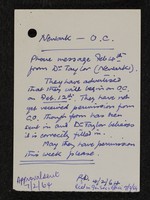 Newark - O.C.
Phone message Feb 10th
from Dr Taylor (Newark).
They have advertised
that they will begin in O.C.
on Feb. 12th. They have not
yet received permission from
C.O. though form has been
sent in and Dr Taylor believes
it is correctly filled in.
May they have permission
this week please
Approval sent
/2/64